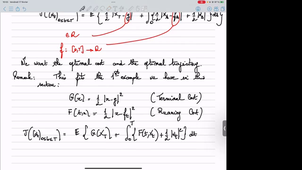 J((α)0≤t≤T) = E { ½ |X_T - g|² + ∫ [½ |X_t - f_t|² + ½ |α_t|²] dt }
∈ R
f: [0,T] → R
We want the optimal cost and the optimal trajectory
Remark: This fits the 1st example we have in the
G(x) = ½ |x-g|² (Terminal Cost)
F(t,x) = ½ |x-f_t|² (Running Cost)
J((α)0≤t≤T) = E { G(X_T) + ∫₀ᵀ { F(t,X_t) + ½ |α_t|² } dt